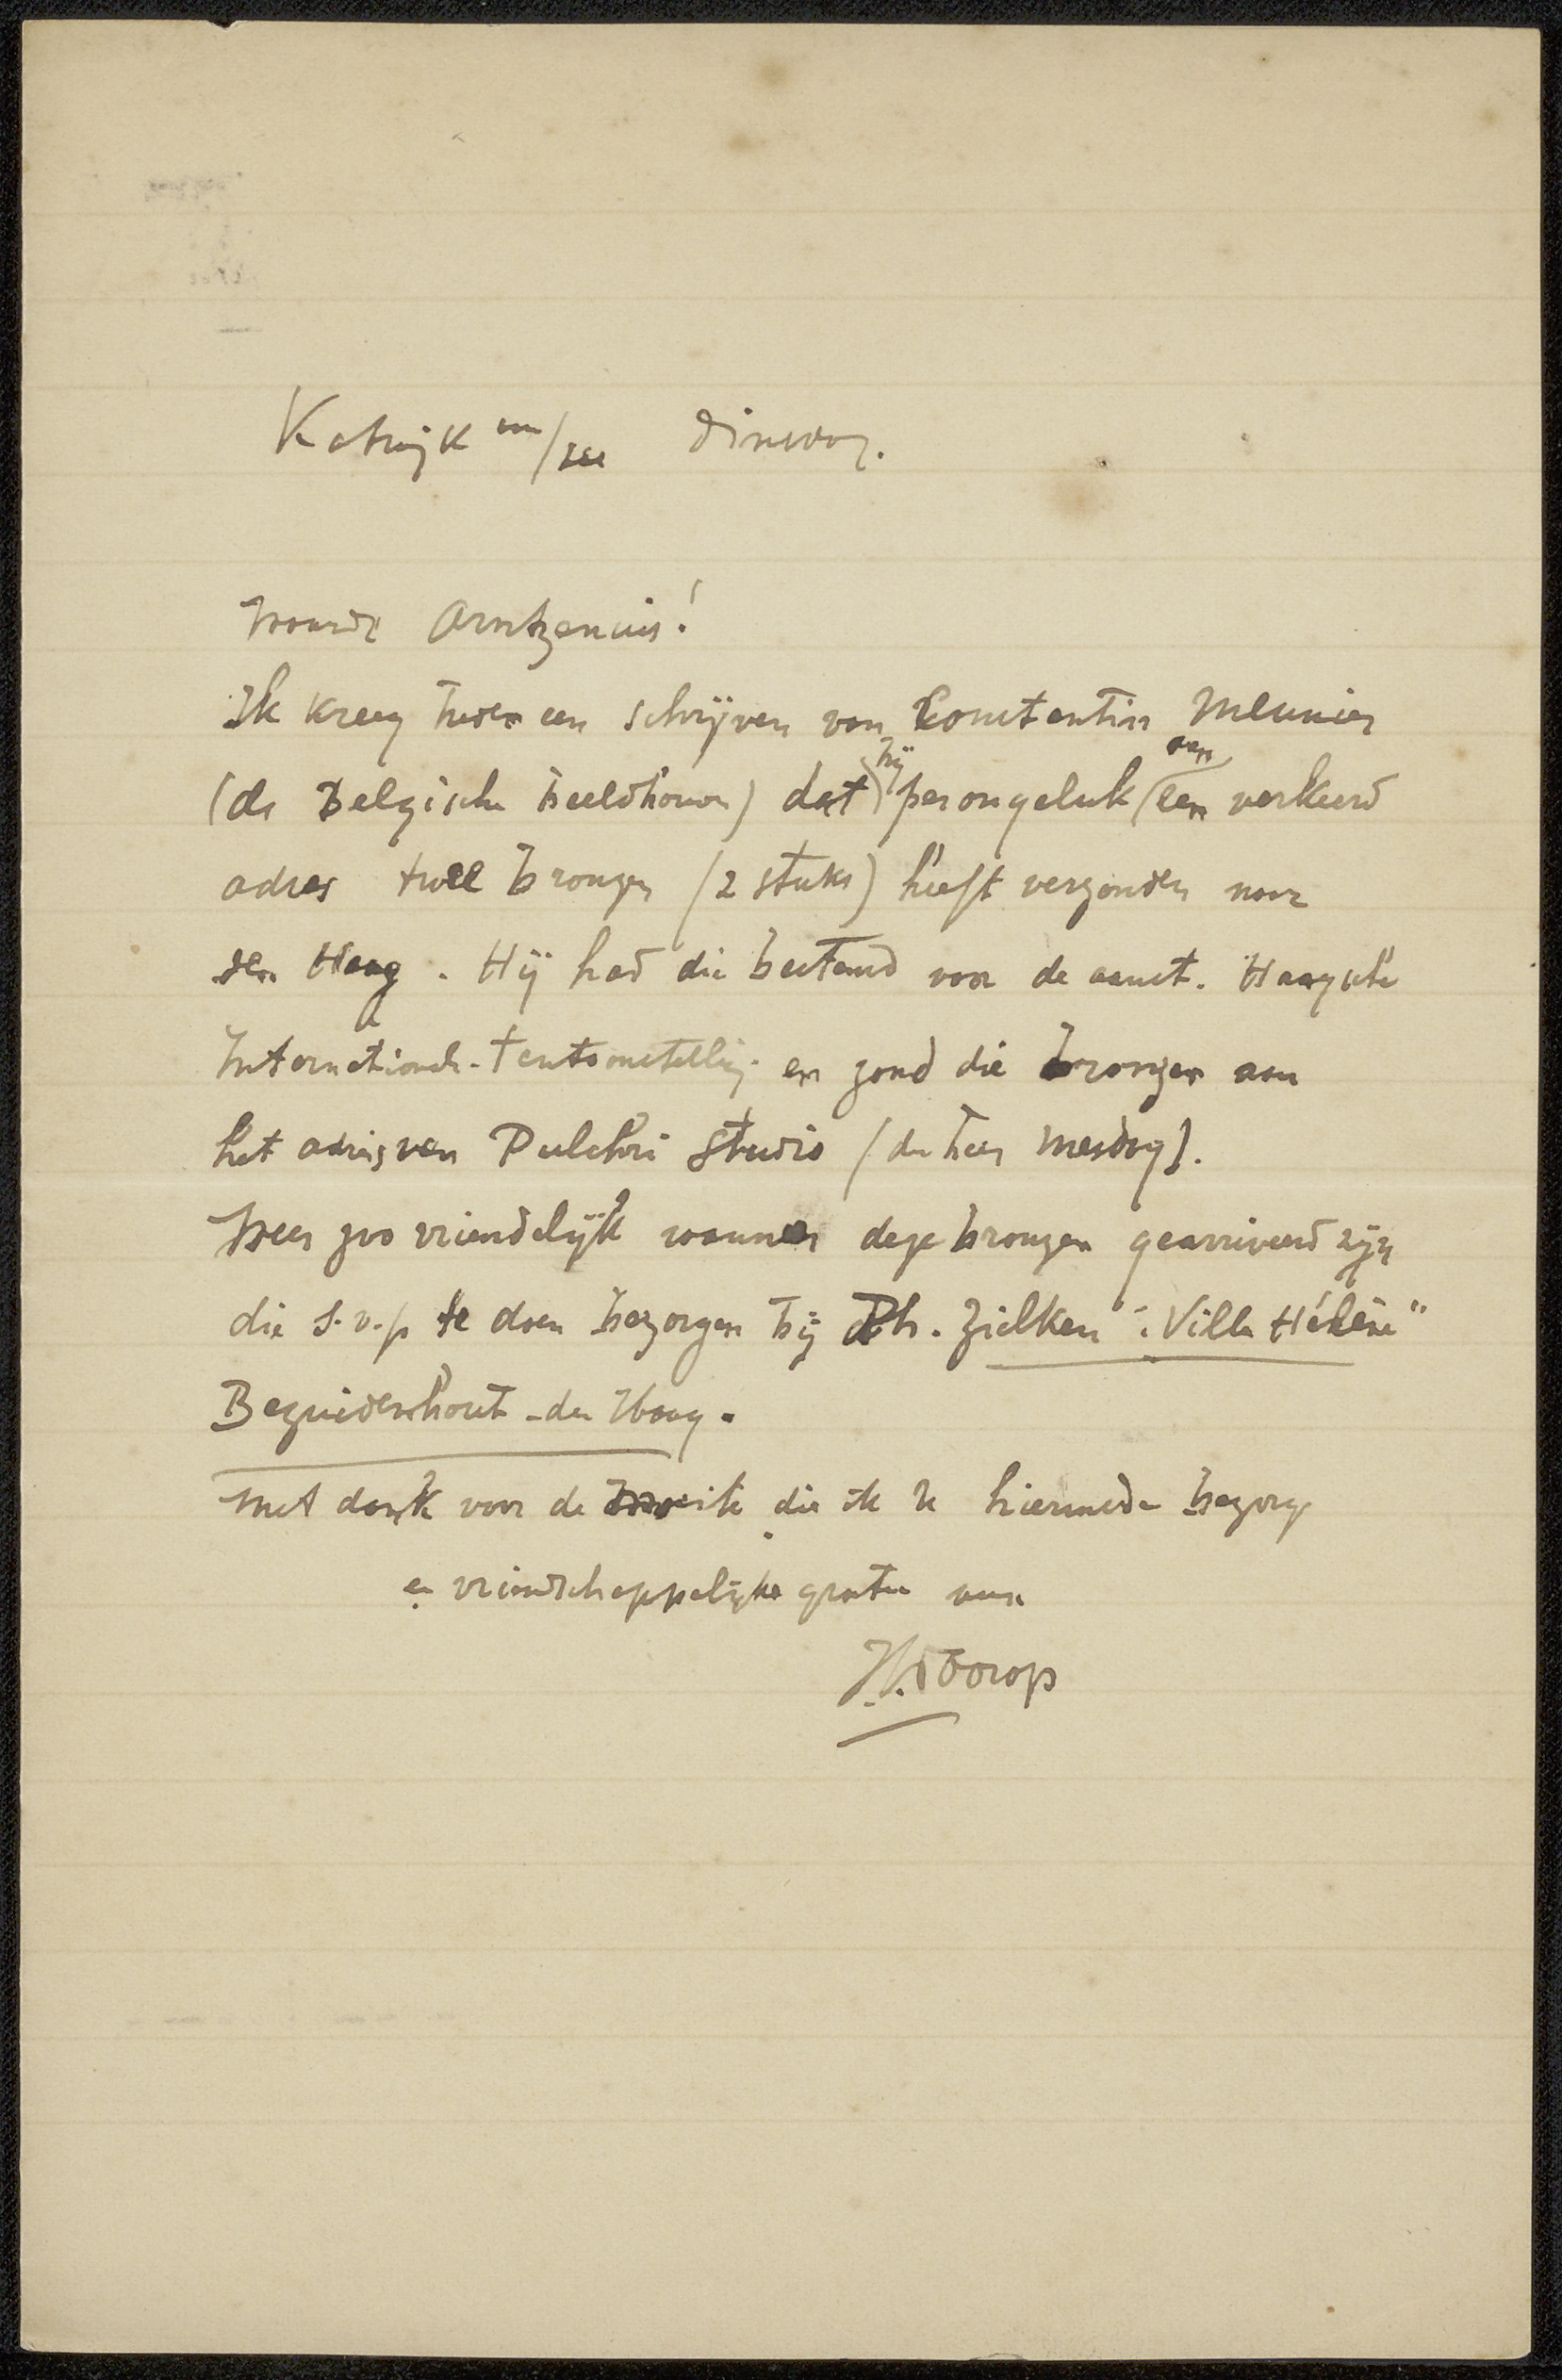 Katwijk aan/zee Dinsdag.
Waarde Arntzenius!
Ik kreeg heden een schrijven van Constantin Meunier
(de Belgische beeldhouwer) dat hij per ongeluk aan een verkeerd
adres twee bronzen (2 stuks) heeft verzonden naar
den Haag. Hij had die bestemd voor de aanst. Haagsche
Internationale Tentoonstelling en zond die bronzen aan
het adres van Pulchri Studio (den heer Mesdag).
Wees zoo vriendelijk wanneer deze bronzen gearriveerd zijn
die s.v.p te doen bezorgen bij Ph. Zilken "Villa Hélène"
Bezuidenhout - den Haag.
Met dank voor de moeite die ik U hiermede bezorg
en vriendschappelijke groeten van
J.Th.Toorop